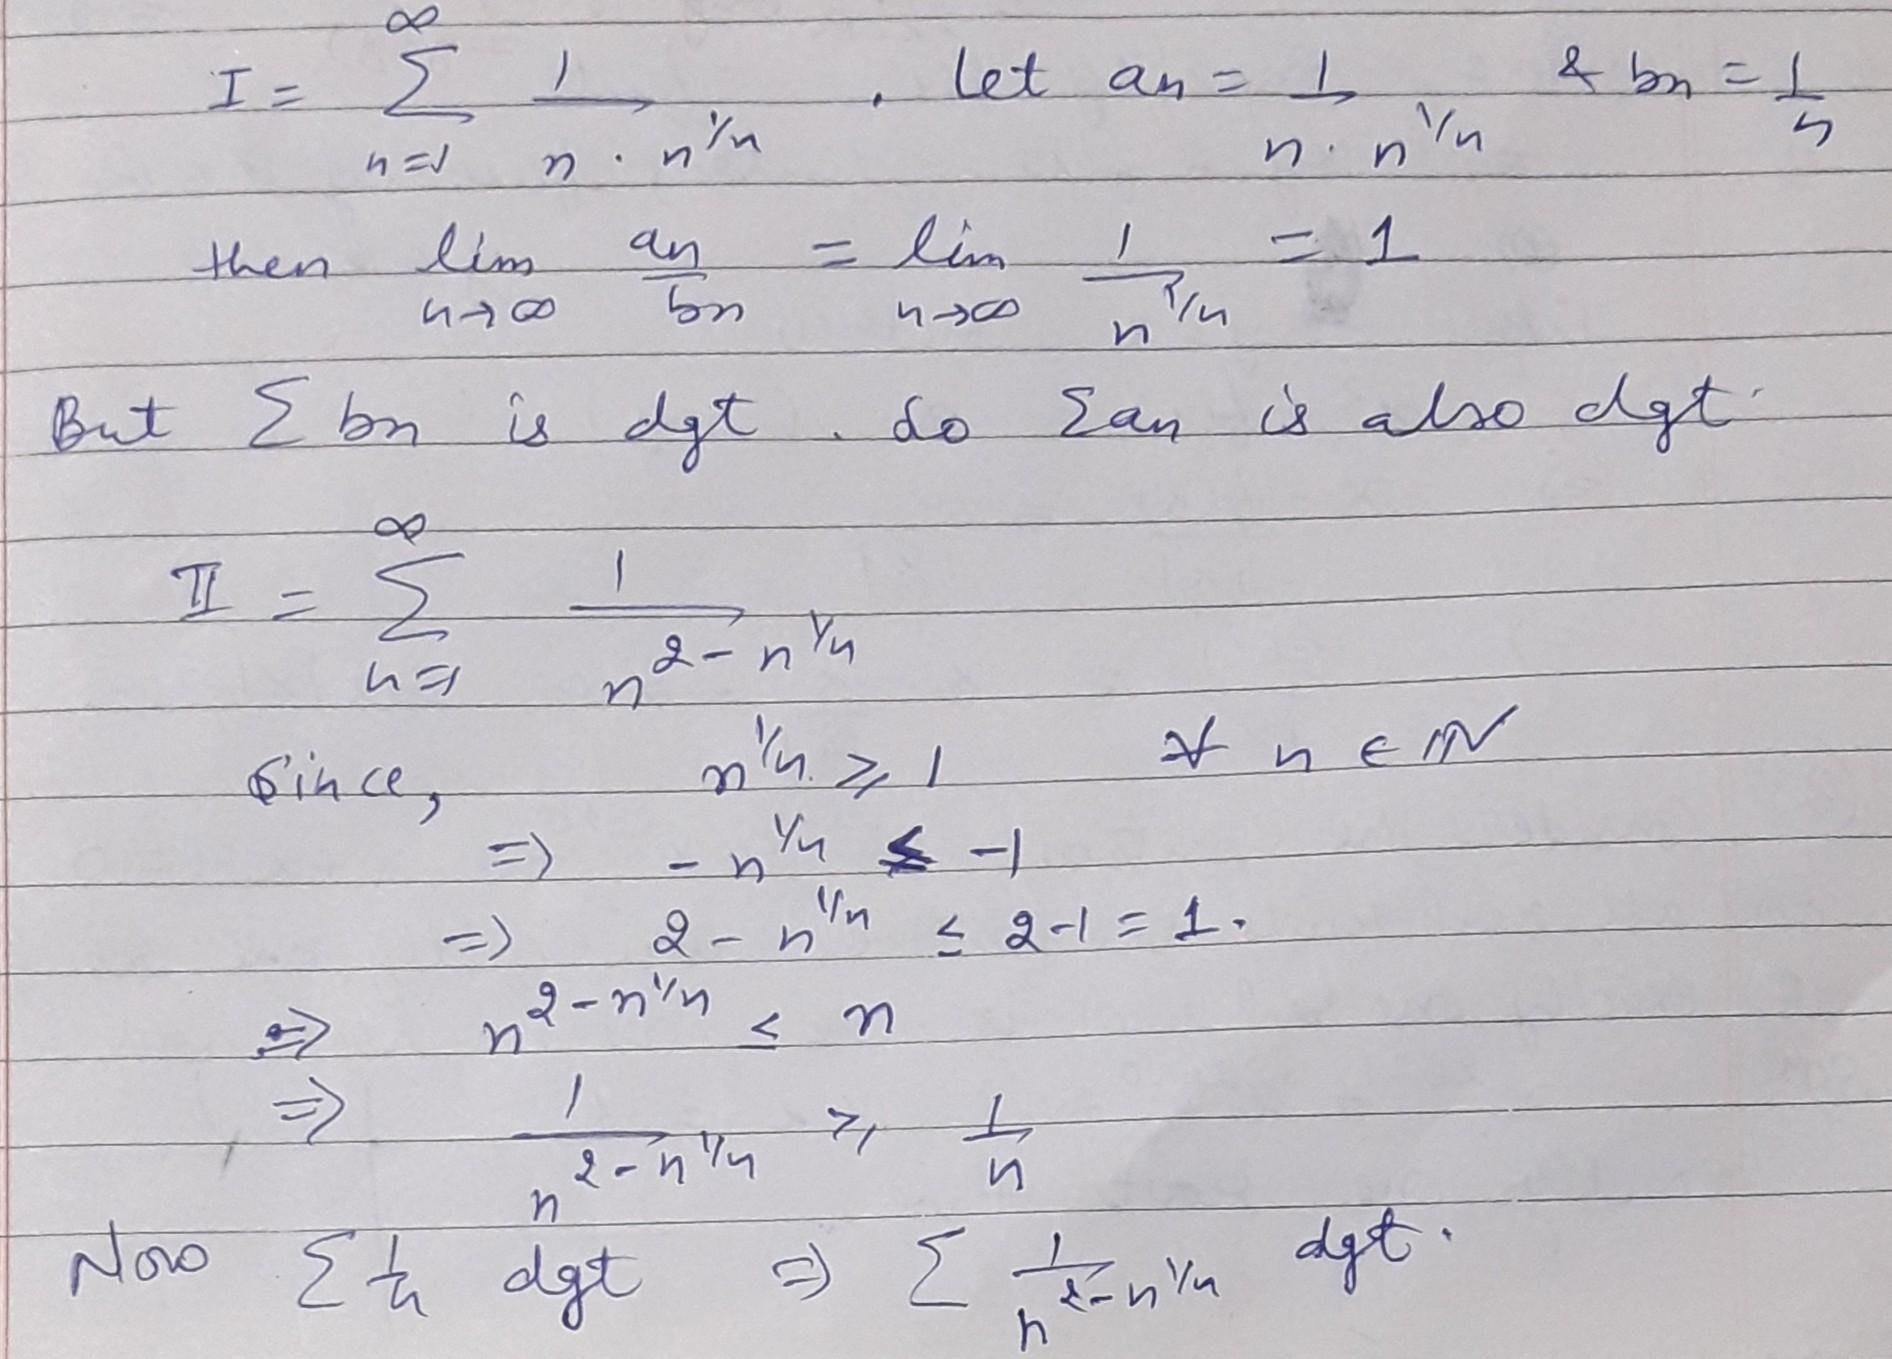 I = ∑_{n=1}^{∞} 1/(n · n^{1/n}) . Let an = 1/(n · n^{1/n}) & bn = 1/n
then lim_{n→∞} an/bn = lim_{n→∞} 1/n^{1/n} = 1
But Σ bn is dgt . So Σan is also dgt.
II = ∑_{n=1}^{∞} 1/n^{2-n^{1/n}}
Since, n^{1/n} ≥ 1 ∀ n ∈ ℕ
⇒ -n^{1/n} ≤ -1
⇒ 2-n^{1/n} ≤ 2-1 = 1.
⇒ n^{2-n^{1/n}} ≤ n
⇒ 1/n^{2-n^{1/n}} ≥ 1/n
Now Σ 1/n dgt ⇒ Σ 1/n^{2-n^{1/n}} dgt.